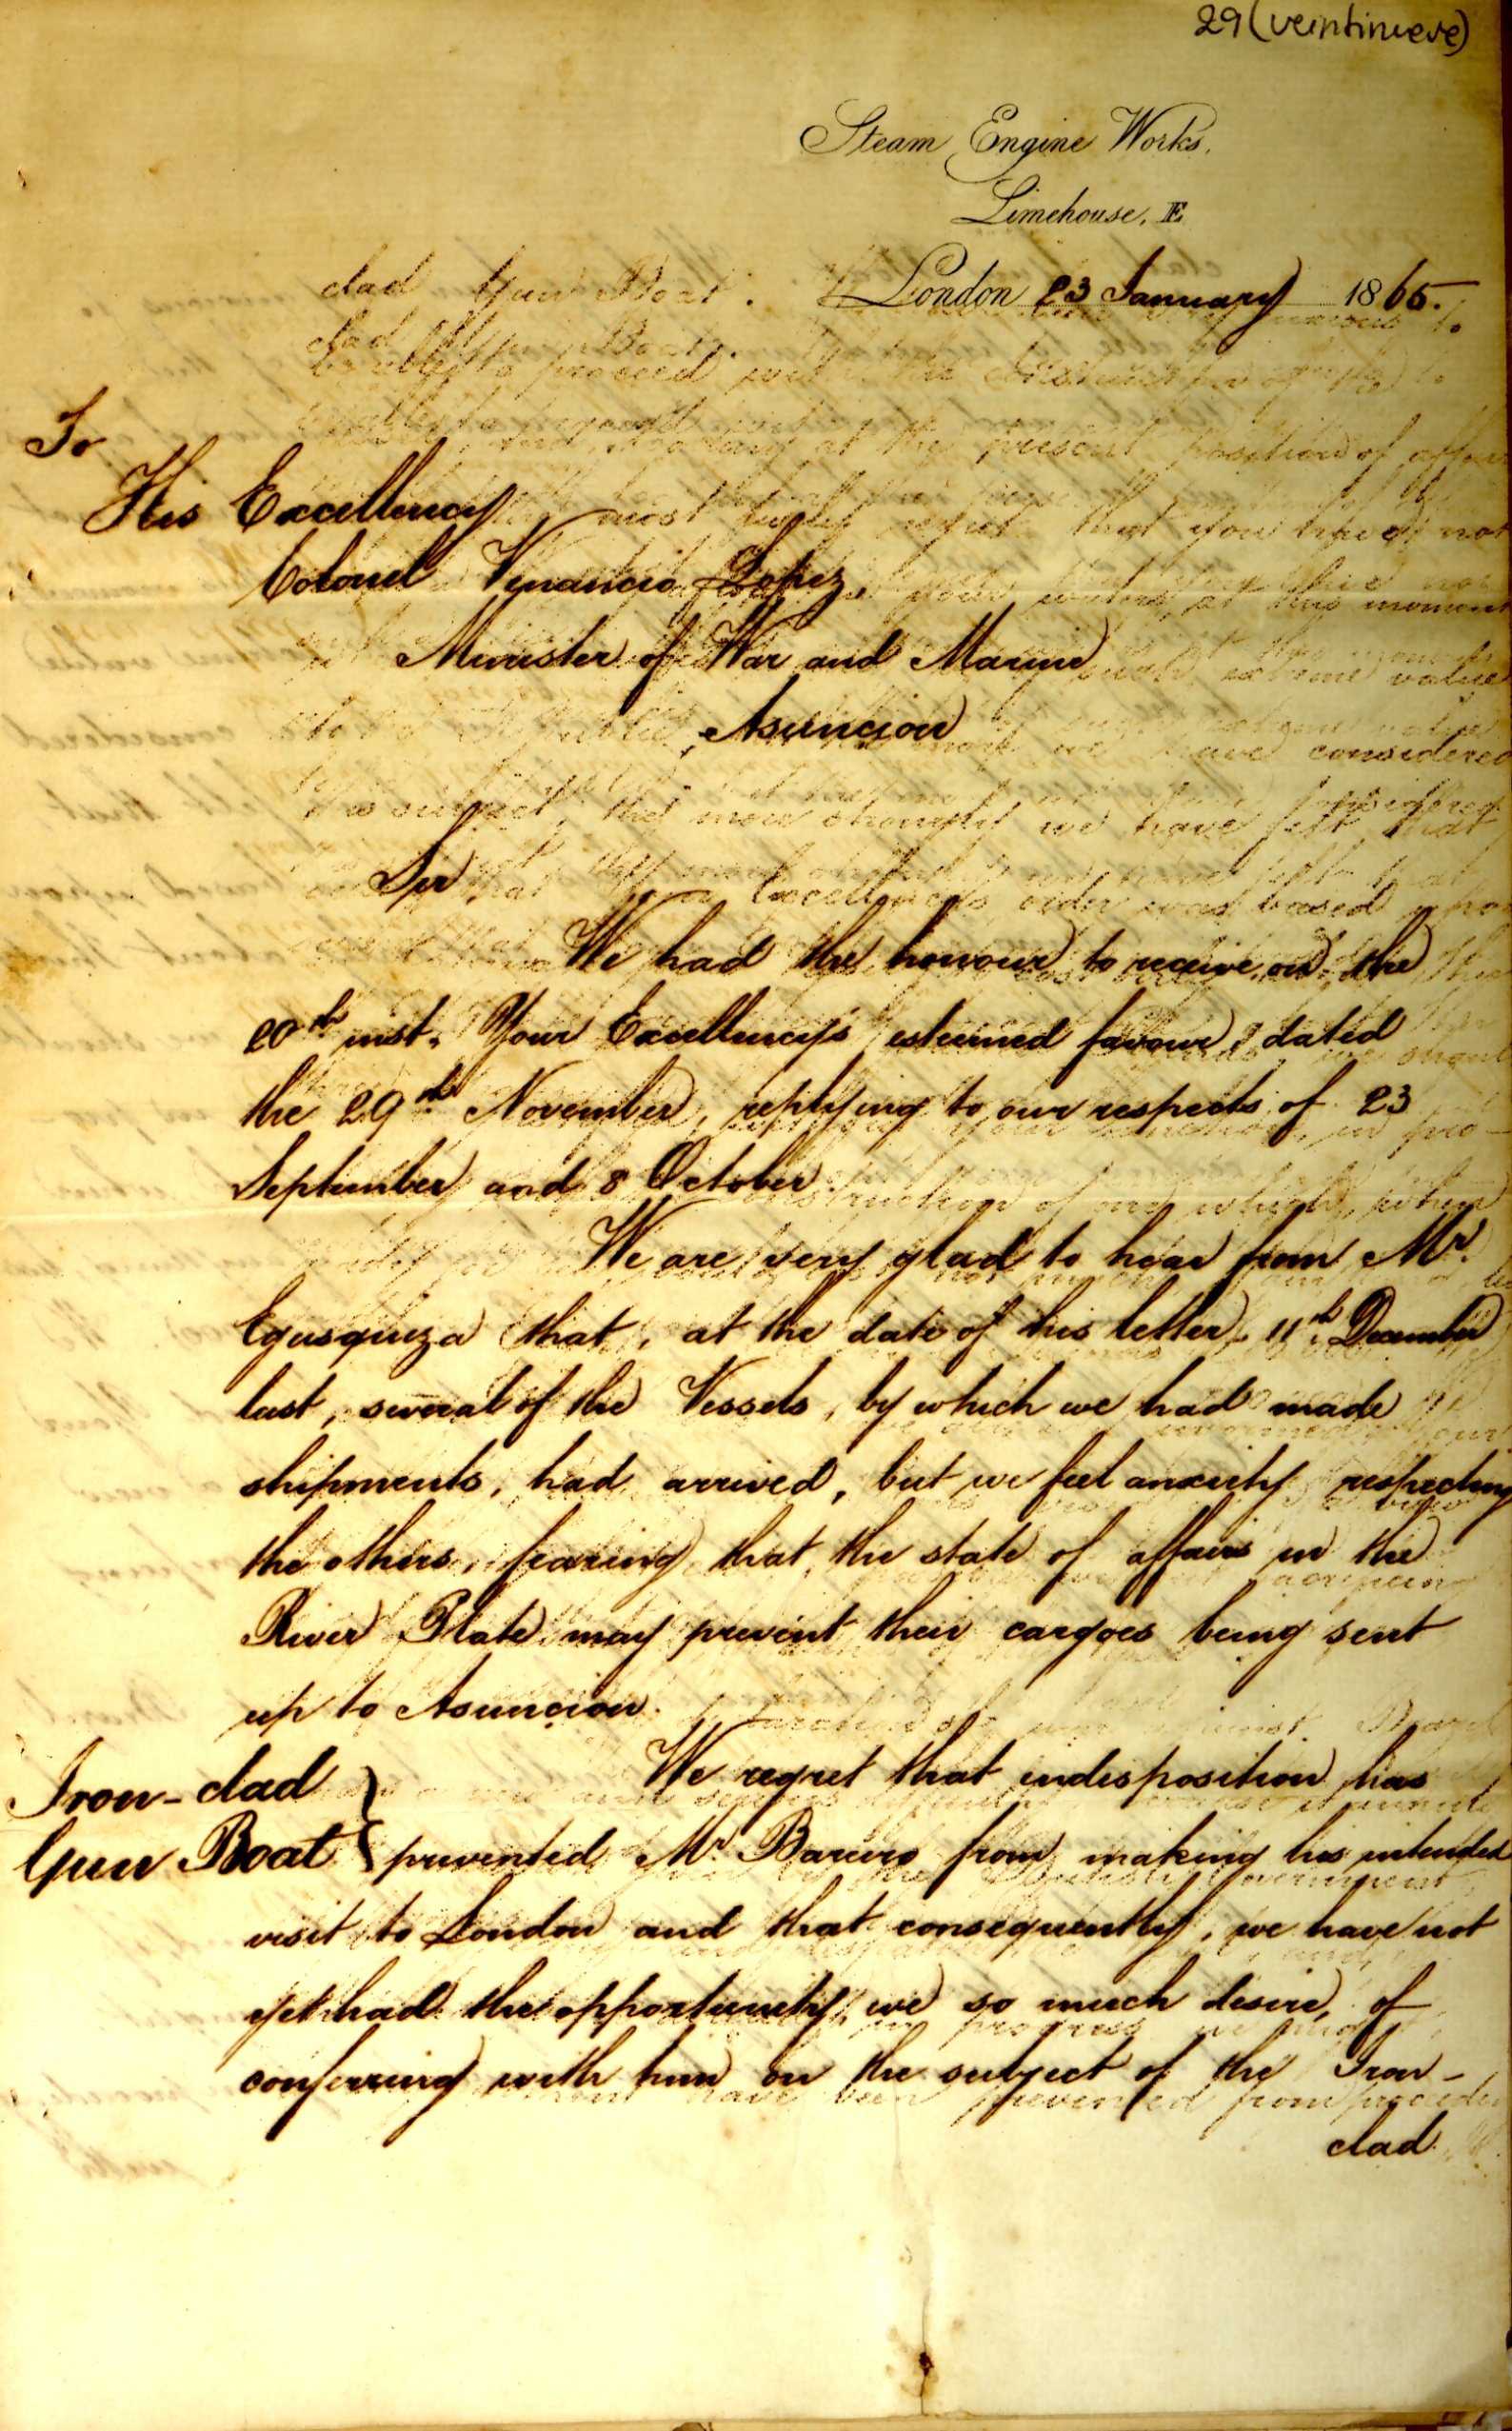 29 (veintinueve)
Steam Engine Works,
Limehouse, E
London 23 January 1865.
To
His Excellency
Colonel Venancio Lopez,
Minister of War and Marine
Asuncion
Sir,
We had the honour to receive, on the
20th inst. Your Excellency's esteemed favour, dated
the 29th November, replying to our respects of 23
September and 8 October.
We are very glad to hear from Mr
Egusquiza that, at the date of his letter, 11th December
last, several of the Vessels, by which we had made
shipments, had arrived, but we feel anxiety respecting
the others, fearing that, the state of affairs in the
River Plate may prevent their cargoes being sent
up to Asuncion.
Iron-clad
Gun Boat
We regret that indisposition has
prevented Mr Bareiro from making his intended
visit to London and that consequently, we have not
yet had the opportunity, we so much desire, of
conferring with him on the subject of the Iron-
clad